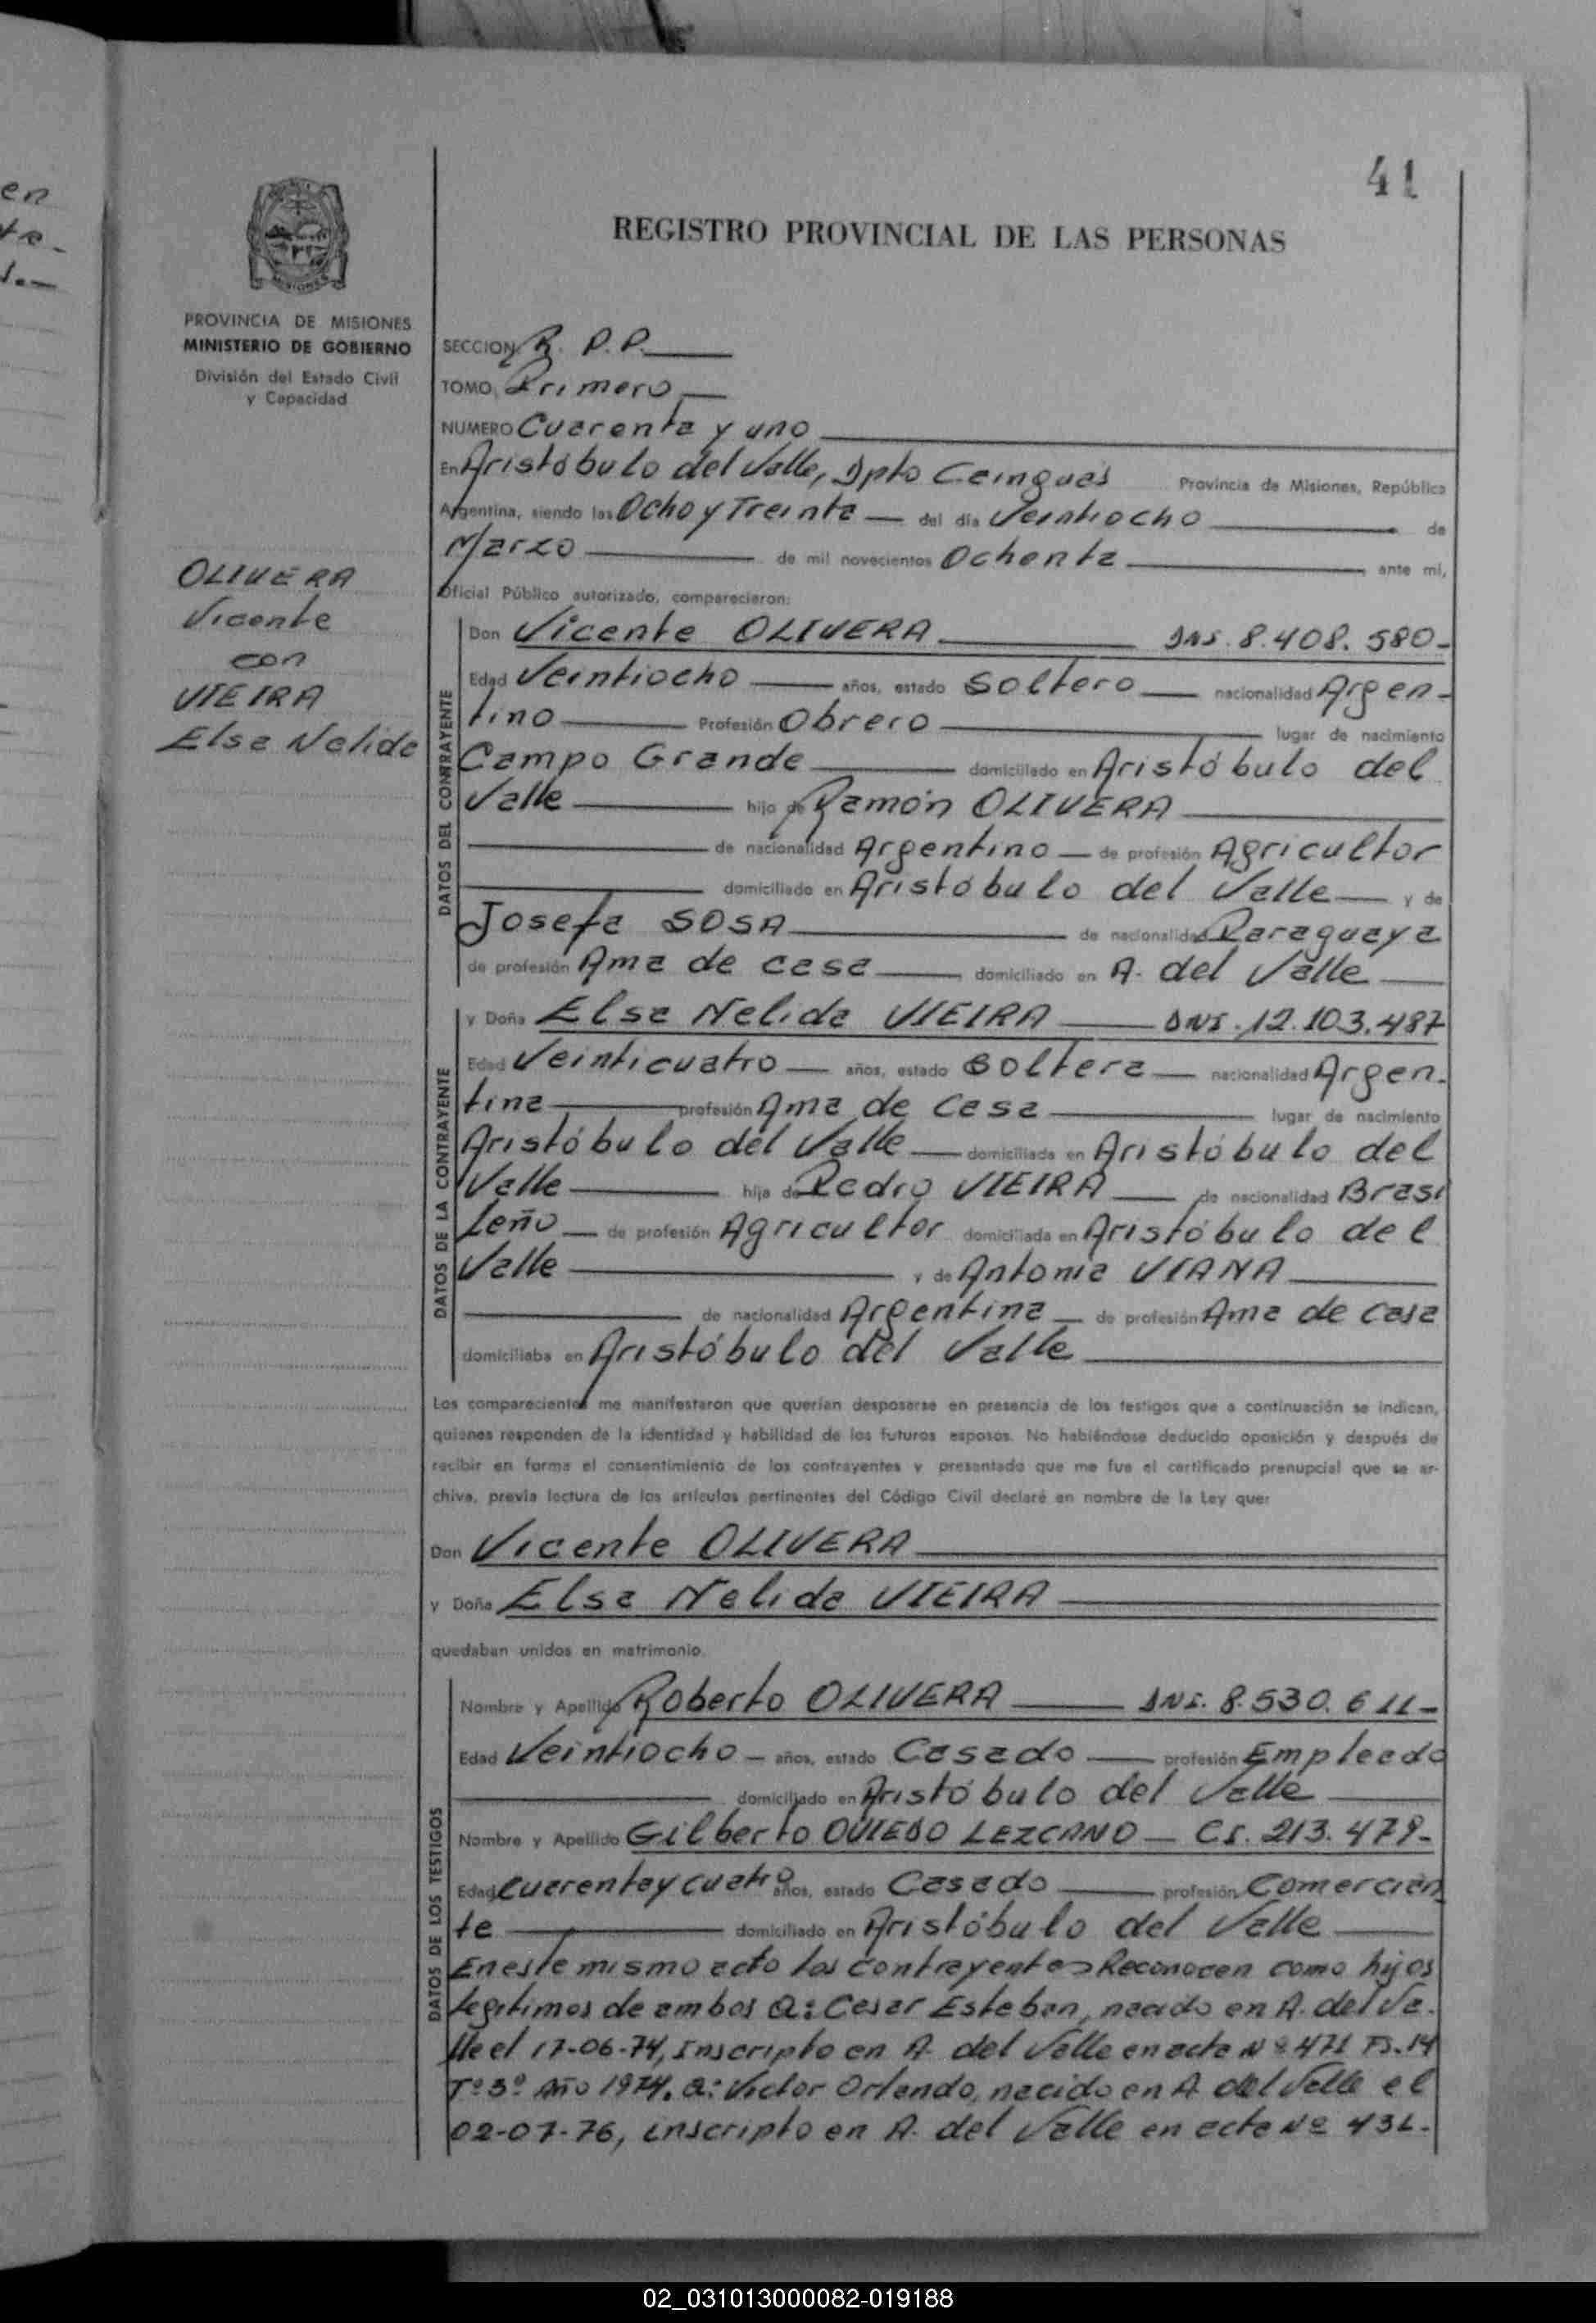 en
41
REGISTRO PROVINCIAL DE LAS PERSONAS
MISIONES
PROVINCIA DE MISIONES
MINISTERIO DE GOBIERNO
División del Estado Civil
y Capacidad
OLIVERA
Vicente
con
VIEIRA
Elsa Nelida
SECCION R. P.P.
TOMO Primero
NUMERO Cuarenta y uno
En Aristóbulo del Valle, Dpto Caingués Provincia de Misiones, República
Argentina, siendo las Ocho y Treinta del día Veintiocho de
Marzo de mil novecientos Ochenta ante mi,
Oficial Público autorizado, comparecieron:
DATOS DEL CONTRAYENTE
Don Vicente OLIVERA DNI. 8.408.580-
Edad Veintiocho años, estado Soltero nacionalidad Argen-
tino Profesión Obrero lugar de nacimiento
Campo Grande domiciliado en Aristóbulo del
Valle hijo de Ramón OLIVERA
de nacionalidad Argentino de profesión Agricultor
domiciliado en Aristóbulo del Valle y de
Josefa SOSA de nacionalidad Paraguaya
de profesión Ama de casa domiciliado en A. del Valle
DATOS DE LA CONTRAYENTE
y Doña Elsa Nelida VIEIRA DNI. 12.103.487
Edad Veinticuatro años, estado Soltera nacionalidad Argen-
tina profesión Ama de Casa lugar de nacimiento
Aristóbulo del Valle domiciliada en Aristóbulo del
Valle hija de Pedro VIEIRA de nacionalidad Brasi
leño de profesión Agricultor domiciliada en Aristóbulo del
Valle y de Antonia VIANA
de nacionalidad Argentina de profesión Ama de casa
domiciliaba en Aristóbulo del Valle
Los comparecientes me manifestaron que querían desposarse en presencia de los testigos que a continuación se indican,
quienes responden de la identidad y habilidad de los futuros esposos. No habiéndose deducido oposición y después de
recibir en forma el consentimiento de los contrayentes y presentado que me fue el certificado prenupcial que se ar-
chiva, previa lectura de los artículos pertinentes del Código Civil declaré en nombre de la Ley que:
Don Vicente OLIVERA
y Doña Elsa Nelida VIEIRA
quedaban unidos en matrimonio.
DATOS DE LOS TESTIGOS
Nombre y Apellido Roberto OLIVERA DNI. 8.530.611-
Edad Veintiocho años, estado Casado profesión Empleado
domiciliado en Aristóbulo del Valle
Nombre y Apellido Gilberto OVIEDO LEZCANO CI. 213.479-
Edad Cuarenta y cuatro años, estado Casado profesión Comercian
te domiciliado en Aristóbulo del Valle
En este mismo acto los contrayentes Reconocen como hijos
legitimos de ambos a: Cesar Esteban, nacido en A. del Va-
lle el 17-06-74, Inscripto en A. del Valle en acta Nº 471 Fs. 14
Tº 3º Año 1974. a: Victor Orlando, nacido en A. del Valle el
02-07-76, inscripto en A. del Valle en acta Nº 431-
02_031013000082-019188